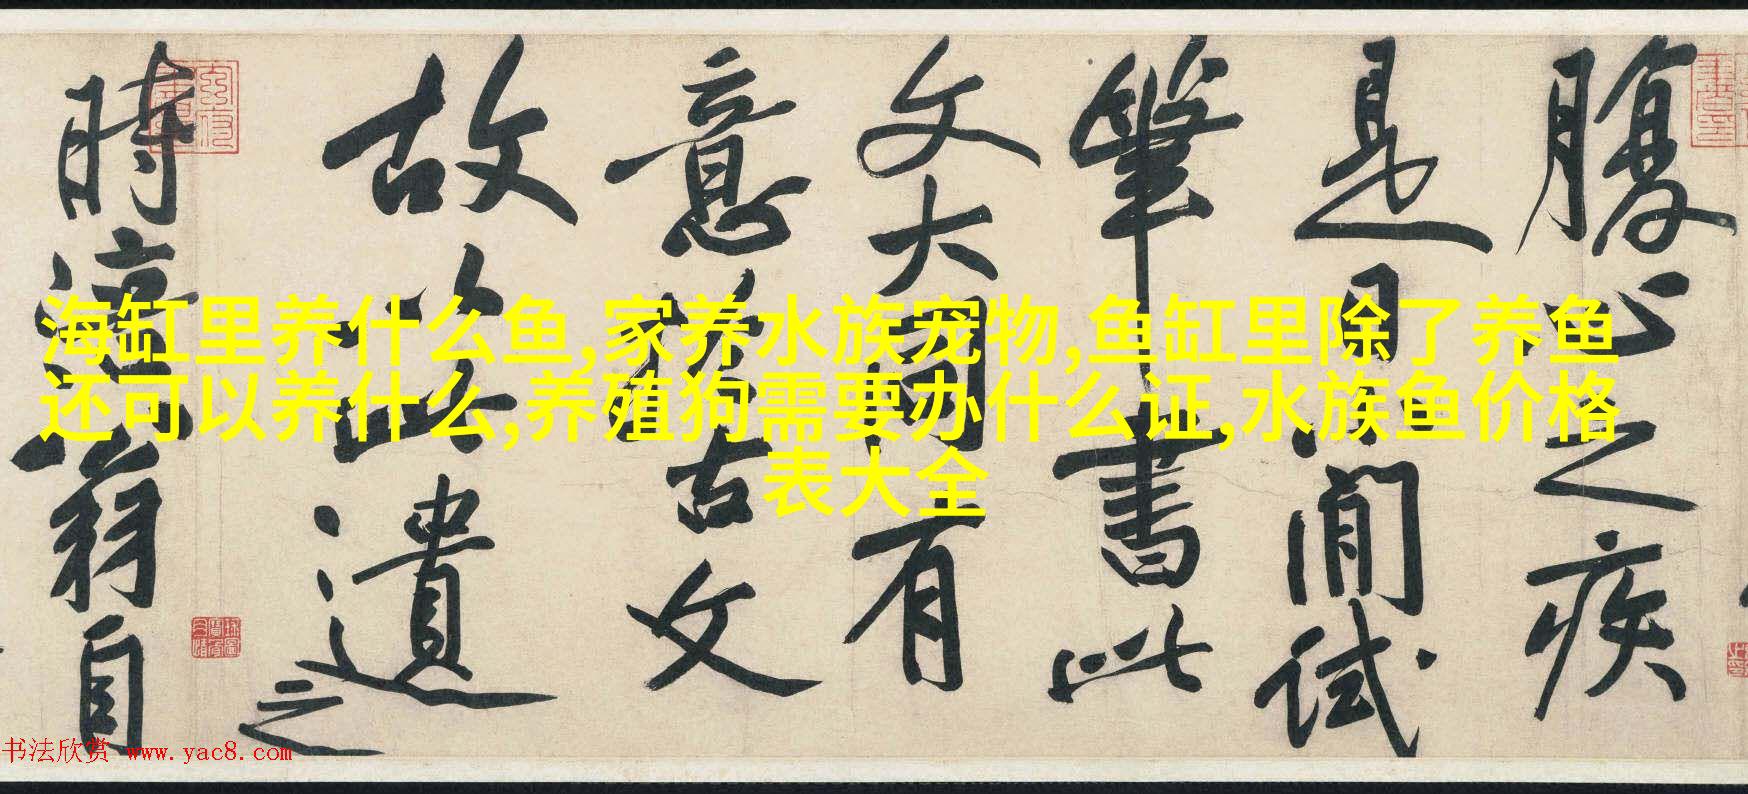 腹心之疾
是日閒試
筆書此
文大有
意古文
故遺
之
時涪翁自
海缸里养什么鱼,家养水族宠物,鱼缸里除了养鱼
还可以养什么,养殖狗需要办什么证,水族鱼价格
表大全
书法欣赏 www.yac8.com